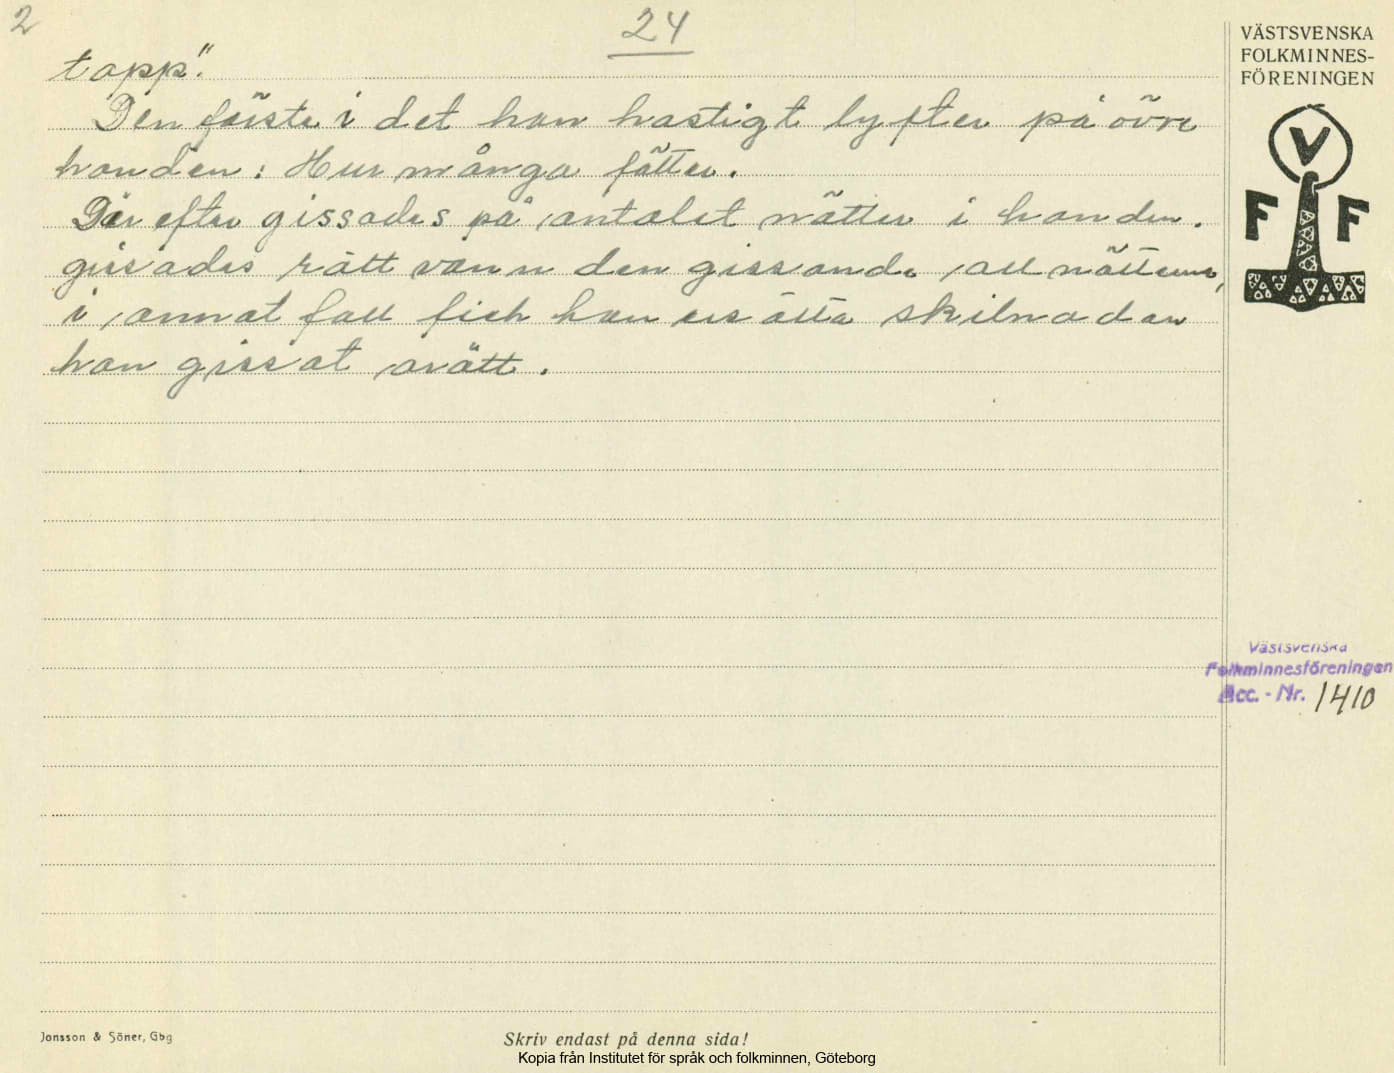 2
24
tapp".
Den förste i det han hastigt lyfter på övre
handen: Hur många fötter.
Där efter gissades på antalet nötter i handen.
gissades rätt vann den gissande all nötterna,
i annat fall fick han ersätta skilnadan
han gissat orätt.
VÄSTSVENSKA
FOLKMINNES-
FÖRENINGEN
V
F F
Västsvenska
Folkminnesföreningen
Acc. - Nr. 1410
Jonsson & Söner, Gbg
Skriv endast på denna sida!
Kopia från Institutet för språk och folkminnen, Göteborg